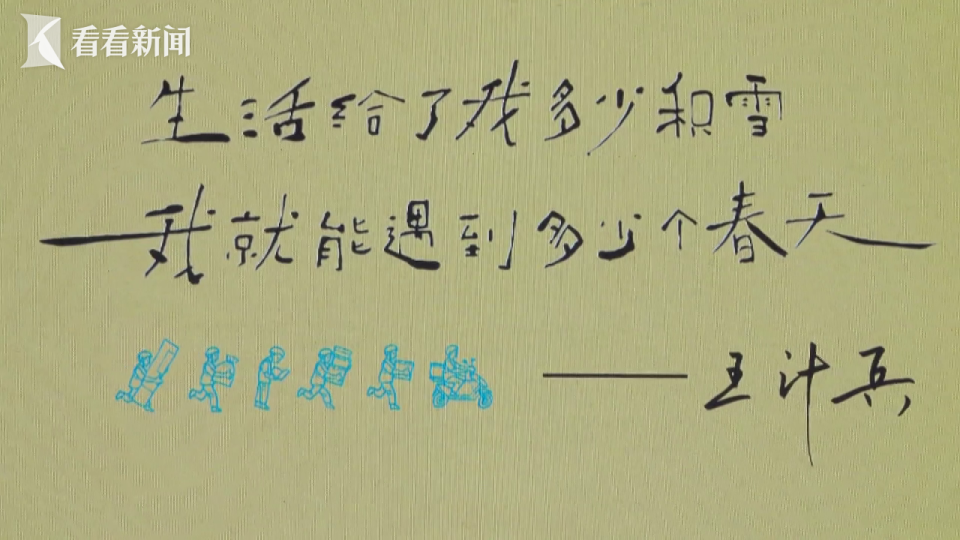 看看新闻
生活给了我多少积雪
我就能遇到多少个春天
——王计兵